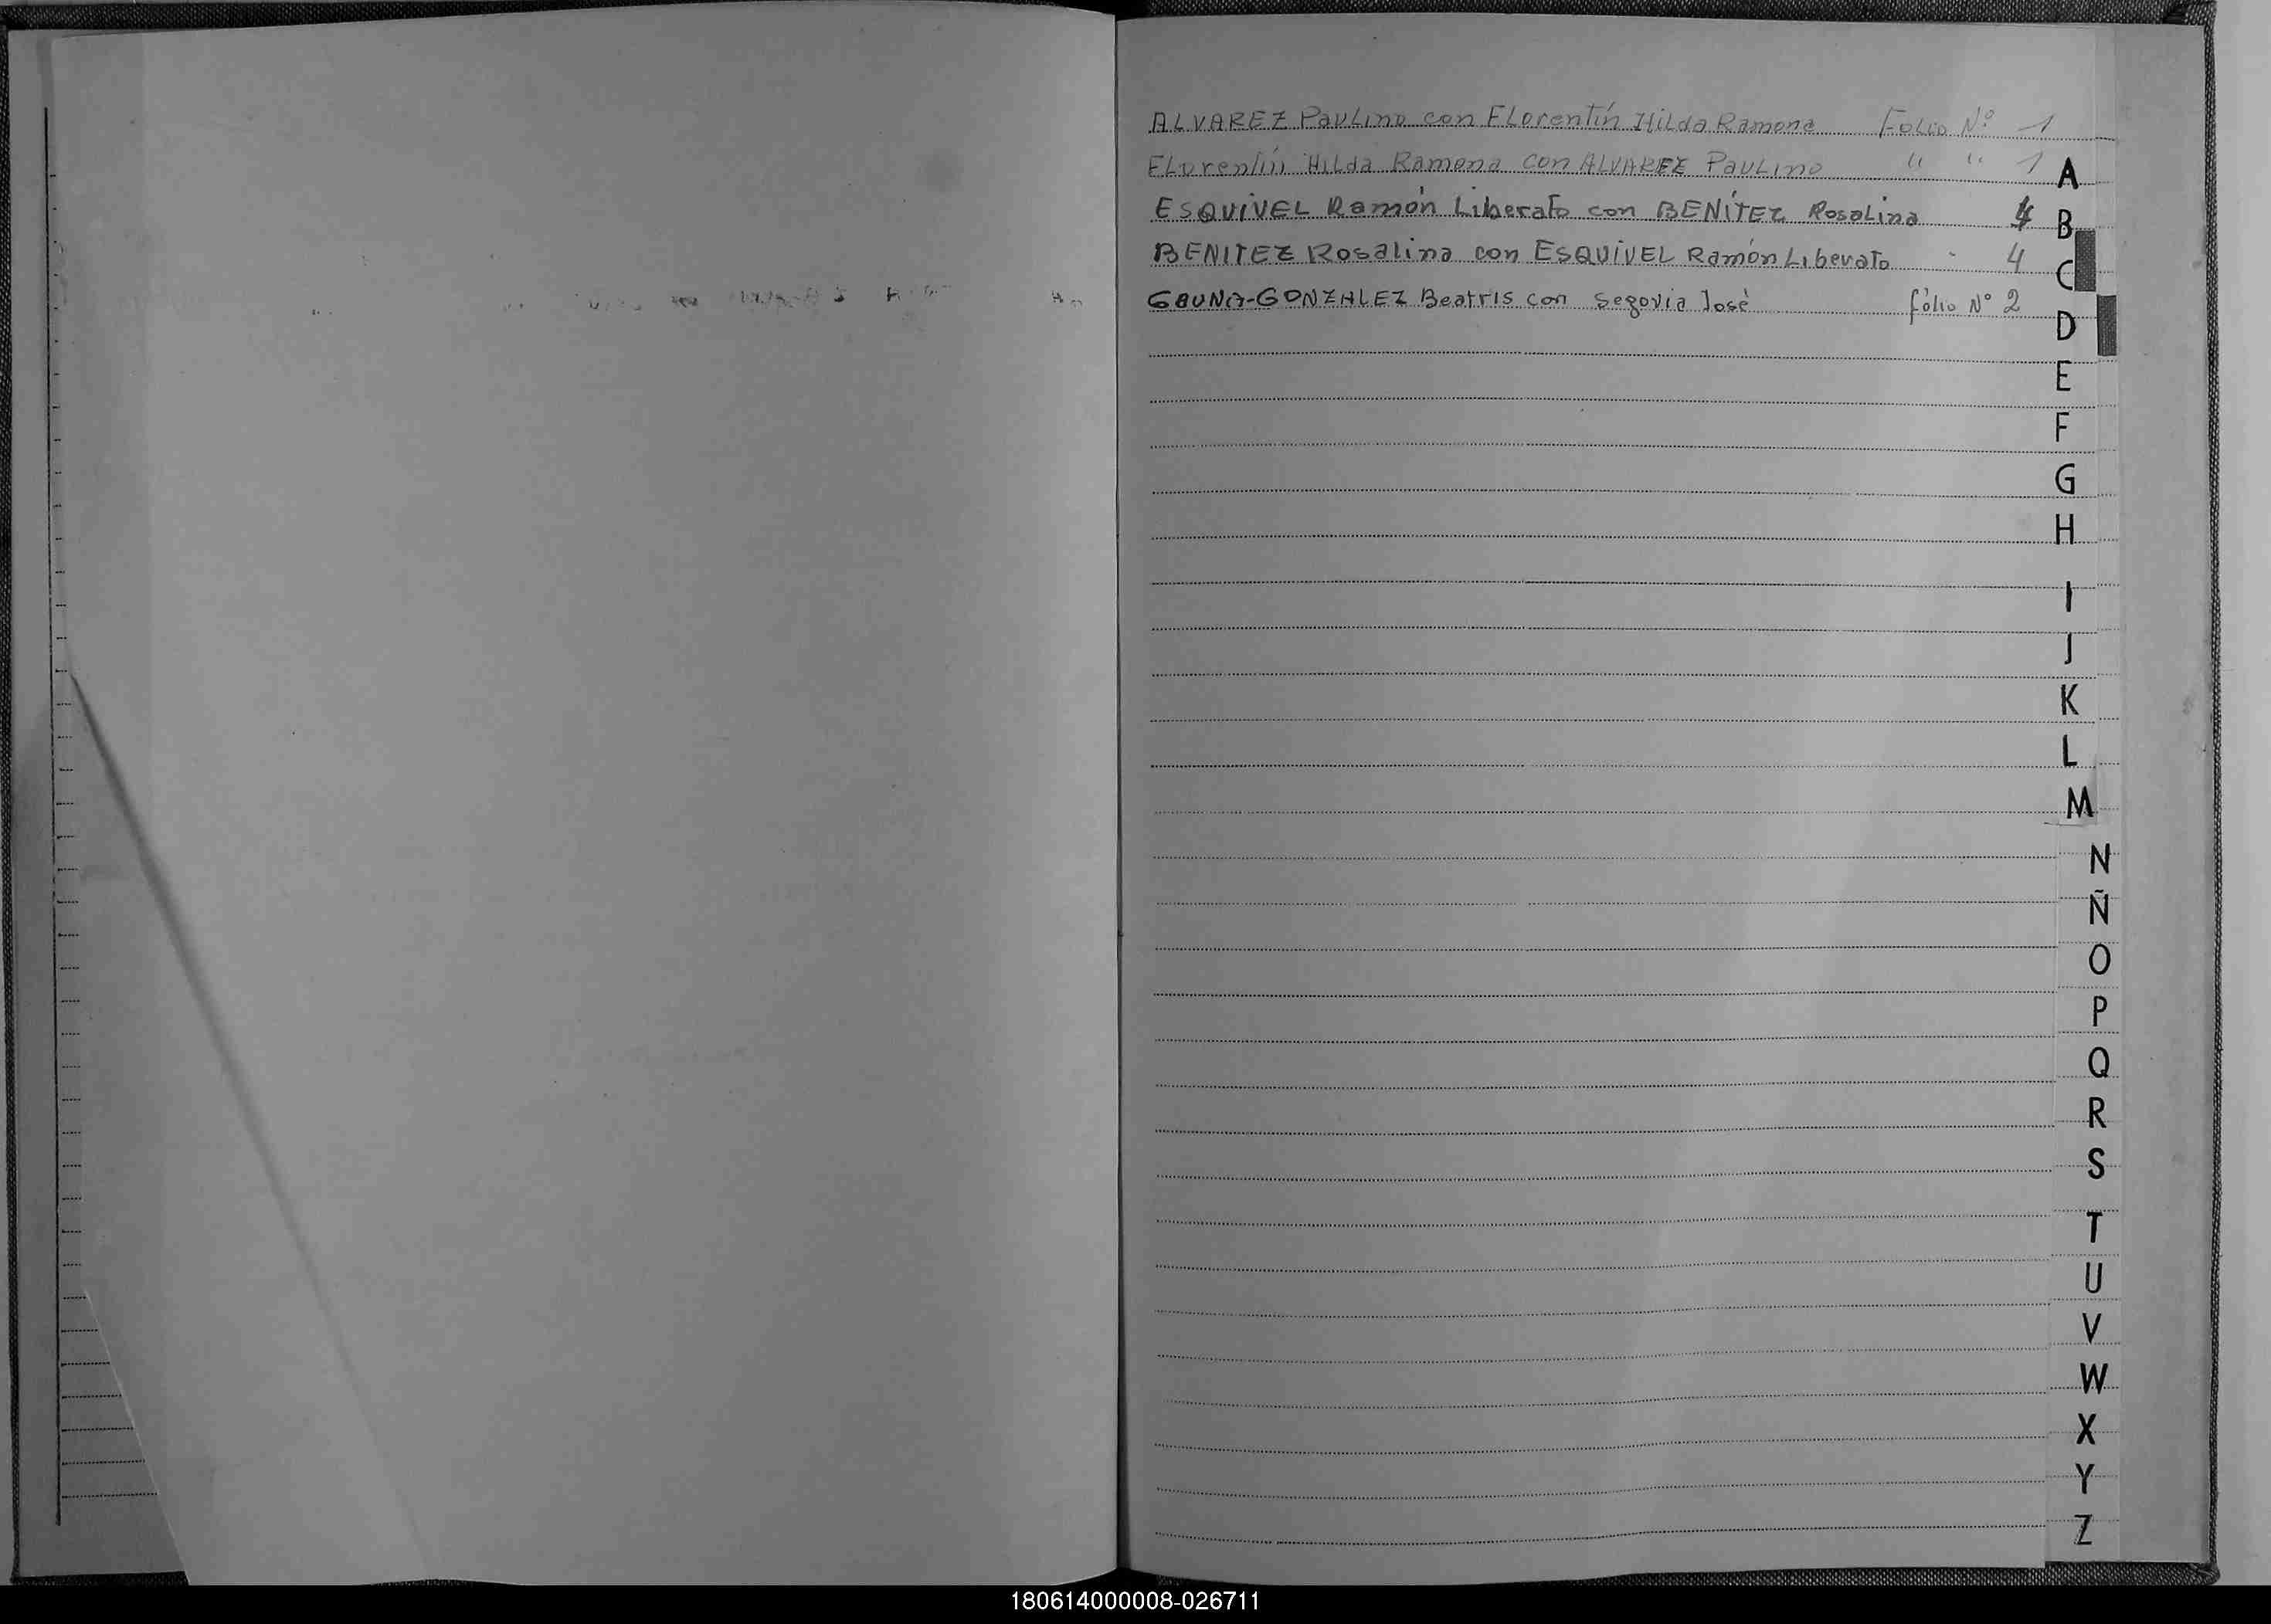 ALVAREZ Paulino con Florentín Hilda Ramona Folio Nº 1
Florentín Hilda Ramona con ALVAREZ Paulino " " 1
ESQUIVEL Ramón Liberato con BENÍTEZ Rosalina 4
BENITEZ Rosalina con ESQUIVEL Ramón Liberato " 4
GAUNA-GONZALEZ Beatris con Segovia José fólio Nº 2
A
B
C
D
E
F
G
H
I
J
K
L
M
N
Ñ
O
P
Q
R
S
T
U
V
W
X
Y
Z
180614000008-026711